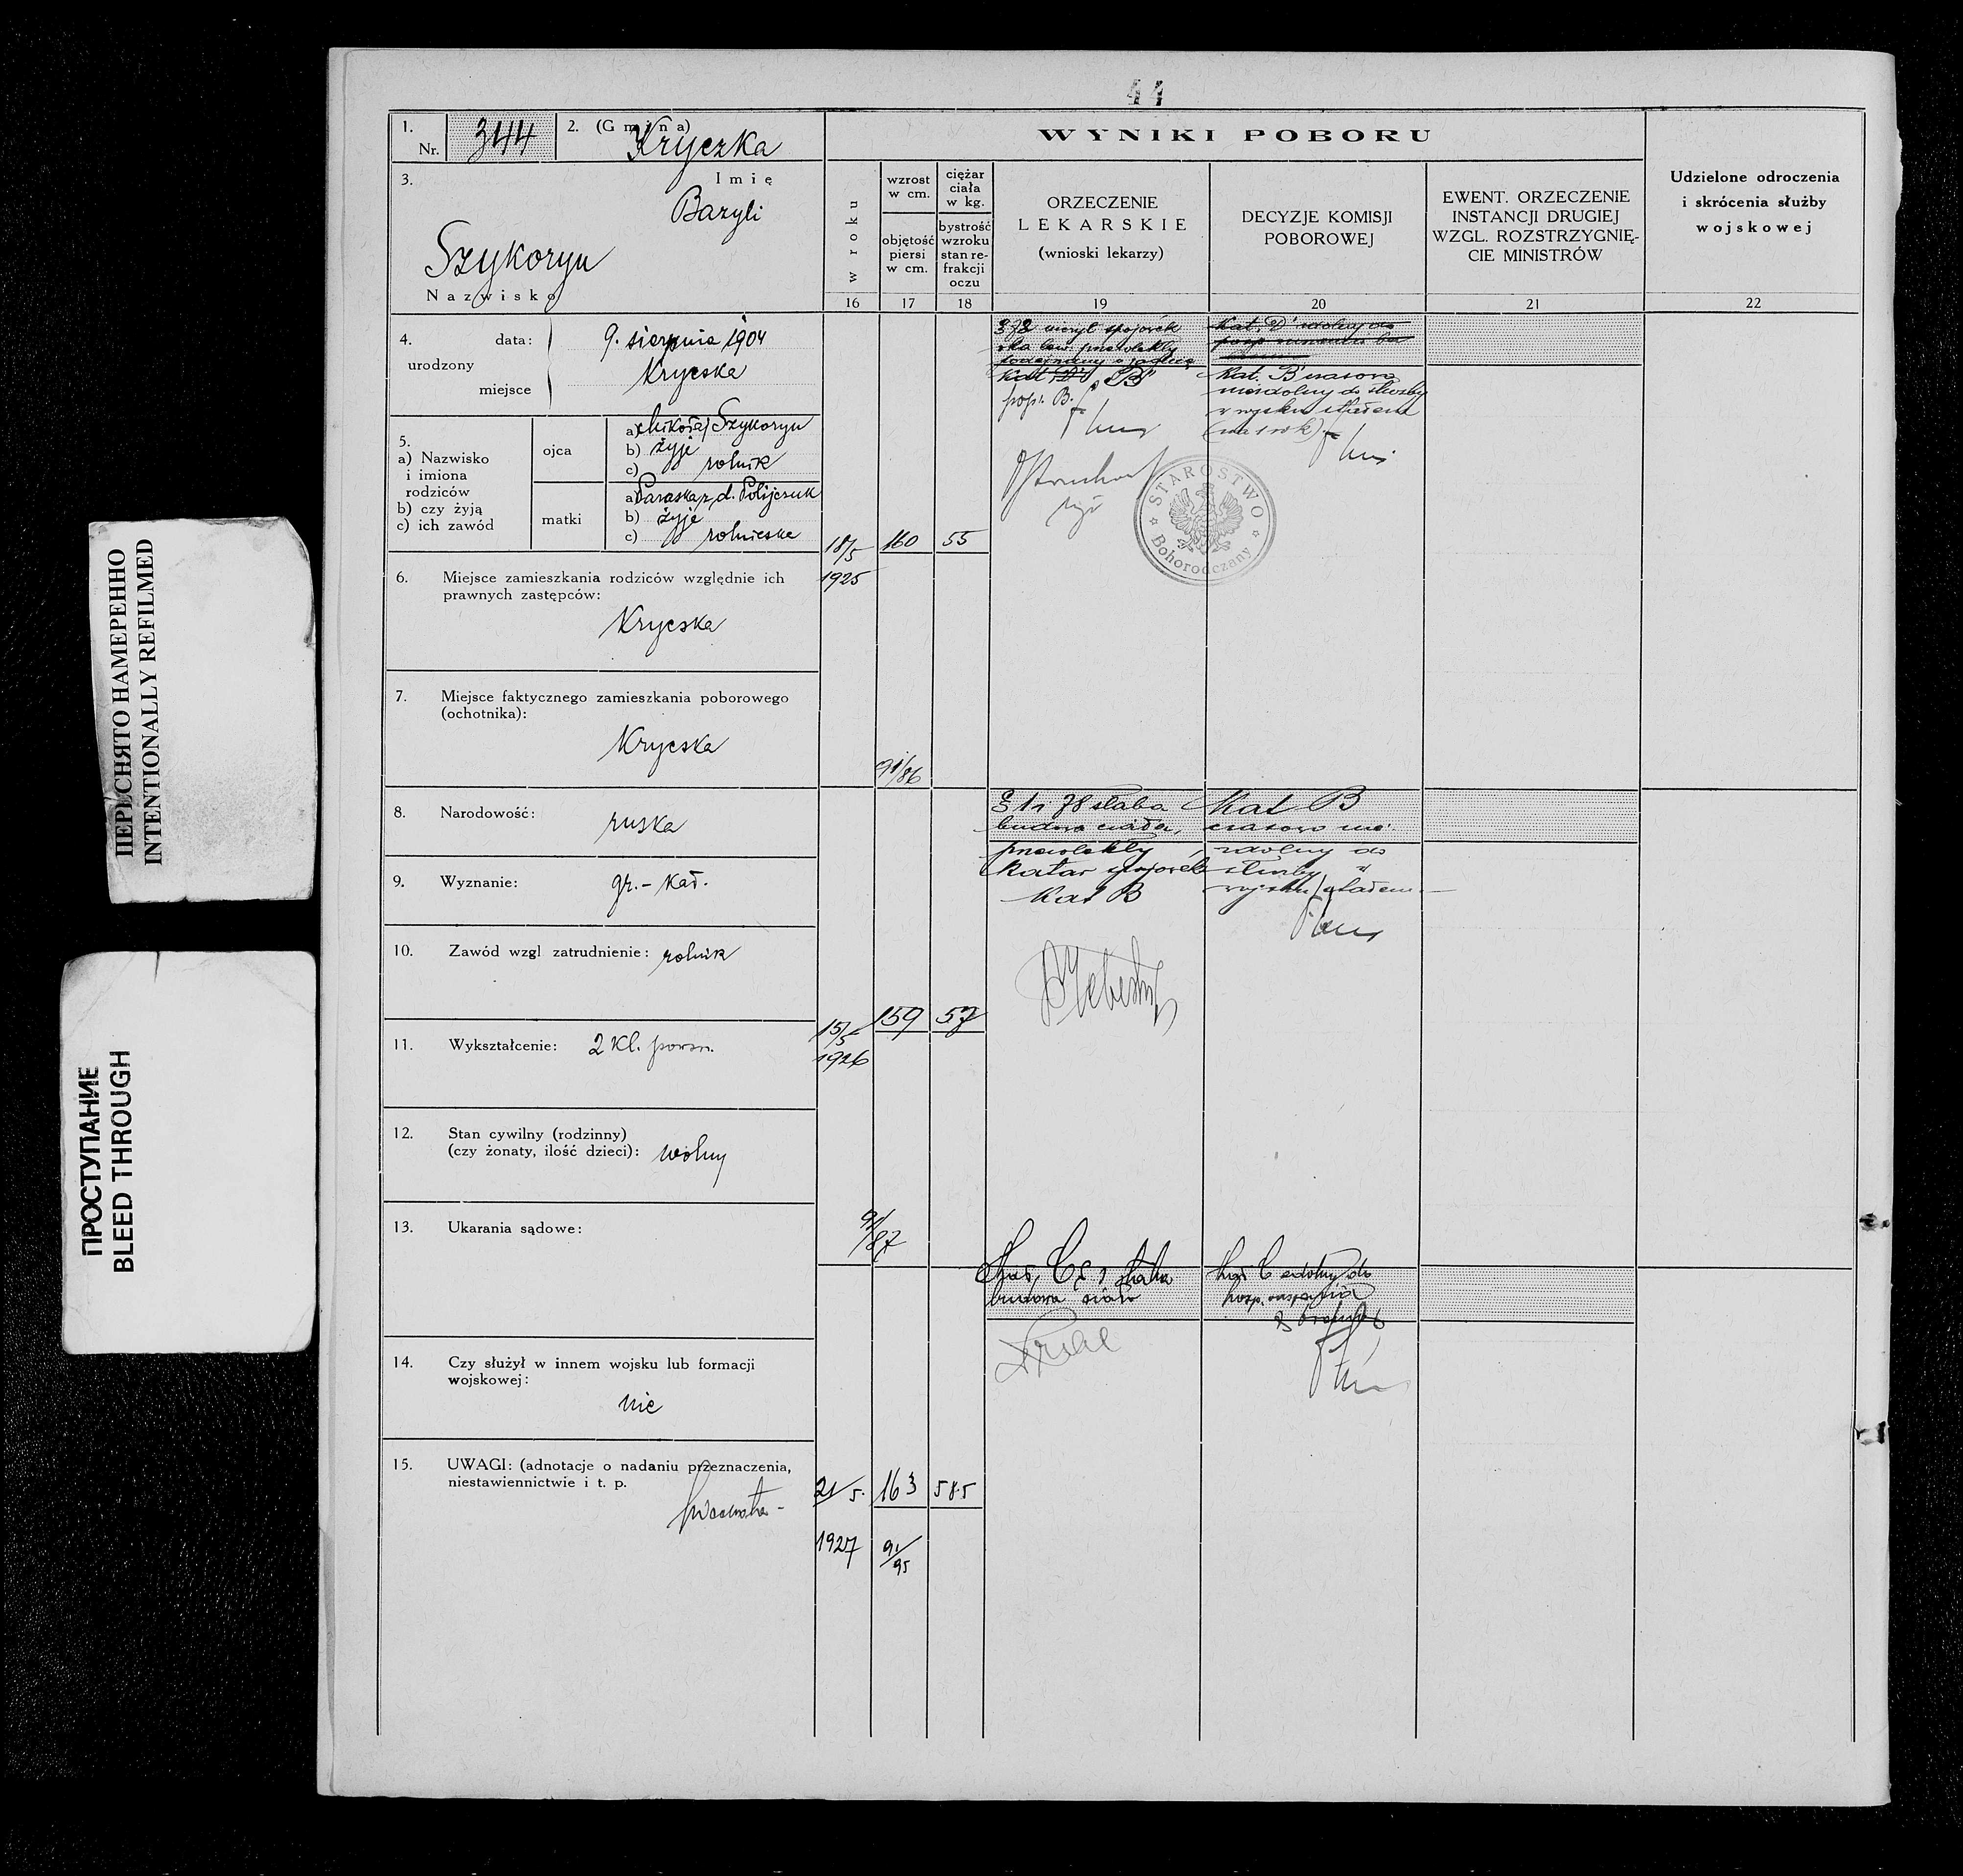 44
1. Nr. 344
2. (Gmina) Kryczka
3. Imię
Bazyli
Szykoryn
Nazwisko
WYNIKI POBORU
w roku
wzrost w cm.
objętość piersi w cm.
ciężar ciała w kg.
bystrość wzroku stan refrakcji oczu
ORZECZENIE
LEKARSKIE
(wnioski lekarzy)
DECYZJE KOMISJI
POBOROWEJ
EWENT. ORZECZENIE
INSTANCJI DRUGIEJ
WZGL. ROZSTRZYGNIĘ-
CIE MINISTRÓW
Udzielone odroczenia
i skrócenia służby
wojskowej
16 17 18 19 20 21 22
4. urodzony
data: 9. sierpnia 1904
miejsce Kryczka
5.
a) Nazwisko
i imiona
rodziców
b) czy żyją
c) ich zawód
ojca
a) Mikołaj Szykoryn
b) żyje
c) rolnik
matki
a) Paraska z d. Polijczuk
b) żyje
c) rolniczka
6. Miejsce zamieszkania rodziców względnie ich
prawnych zastępców:
Kryczka
7. Miejsce faktycznego zamieszkania poborowego
(ochotnika):
Kryczka
8. Narodowość: ruska
9. Wyznanie: gr.-kat.
10. Zawód wzgl zatrudnienie: rolnik
11. Wykształcenie: 2 kl. powsz.
12. Stan cywilny (rodzinny)
(czy żonaty, ilość dzieci): wolny
13. Ukarania sądowe:
14. Czy służył w innem wojsku lub formacji
wojskowej:
nie
15. UWAGI: (adnotacje o nadaniu przeznaczenia,
niestawiennictwie i t. p.
18/5 160 55
1925
91/86
Kat. "D" "B"
popr. B.
Kat. B czasowo
niezdolny do służby
w wojsku stałem
(na 1 rok)
STAROSTWO
Bohorodczany
15/5 159 57
1926
91/87
§ 1 i 78 słaba
budowa ciała,
przewlekły
katar spojówek
Kat B
Kat B
czasowo nie-
zdolny do
służby w
wojsku stałem
21/5. 163 58.5
1927 91/95
Kat. C § 1 słaba
budowa ciała
Kat C zdolny do
ПЕРЕСНЯТО НАМЕРЕННО
INTENTIONALLY REFILMED
ПРОСТУПАНИЕ
BLEED THROUGH